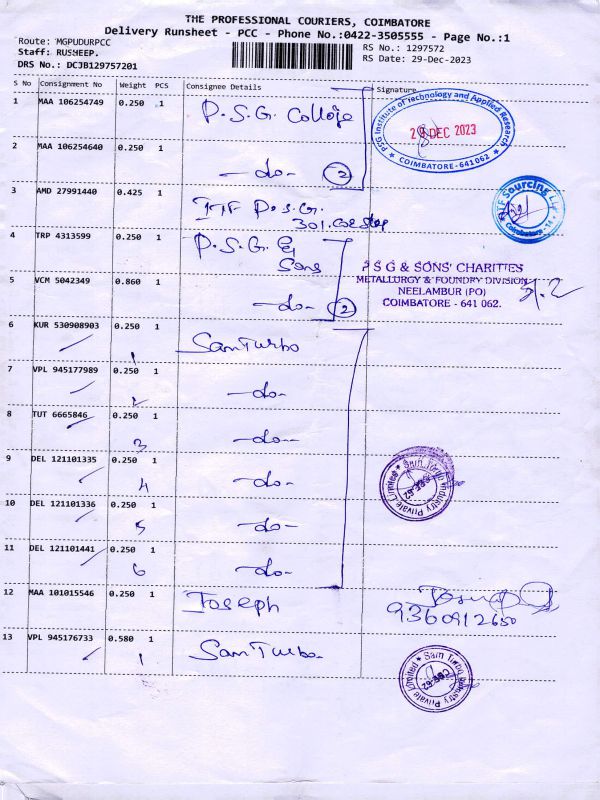 THE PROFESSIONAL COURIERS, COIMBATORE
Delivery Runsheet - PCC - Phone No.:0422-3505555 - Page No.:1
Route: MGPUDURPCC
Staff: RUSHEEP.
DRS No.: DCJB129757201
RS No.: 1297572
RS Date: 29-Dec-2023
S No Consignment No Weight PCS Consignee Details Signature
1 MAA 106254749 0.250 1 P.S.G. College
PSG Institute of Technology and Applied Research
29 DEC 2023
COIMBATORE-641 062
2 MAA 106254640 0.250 1 -do- 2
3 AMD 27991440 0.425 1 P.S.G.
Sourcing
Coimbatore
4 TRP 4313599 0.250 1 P.S.G. & Sons
P S G & SONS' CHARITIES
METALLURGY & FOUNDRY DIVISION
NEELAMBUR (PO)
COIMBATORE - 641 062.
5 VCM 5042349 0.860 1 -do- 2
6 KUR 530908903 0.250 1 1 Sam Turbo
7 VPL 945177989 0.250 1 2 -do-
8 TUT 6665846 0.250 1 3 -do-
9 DEL 121101335 0.250 1 4 -do-
Sam Turbo Industry Private Limited
CBE-62
10 DEL 121101336 0.250 1 5 -do-
11 DEL 121101441 0.250 1 6 -do-
12 MAA 101015546 0.250 1 Joseph
9360912650
13 VPL 945176733 0.580 1 1 Sam Turbo
Sam Turbo Industry Private Limited
CBE-62